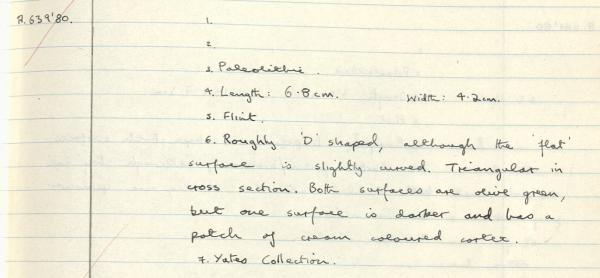 A.639'80.
1.
2.
3. Paleolithic.
4. Length: 6.8cm. Width: 4.2cm.
5. Flint.
6. Roughly 'D' shaped, although the 'flat'
surface is slightly curved. Triangular in
cross section. Both surfaces are olive green,
but one surface is darker and has a
patch of cream coloured cortex.
7. Yates Collection.